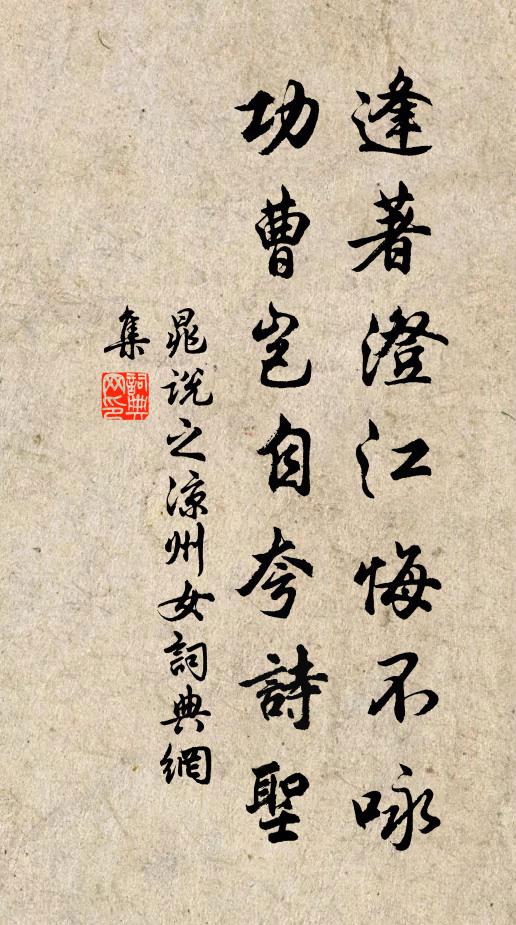 逢著澄江悔不咏
功曹豈自夸詩聖
晁說之涼州女詞典網
集
詞典
网印